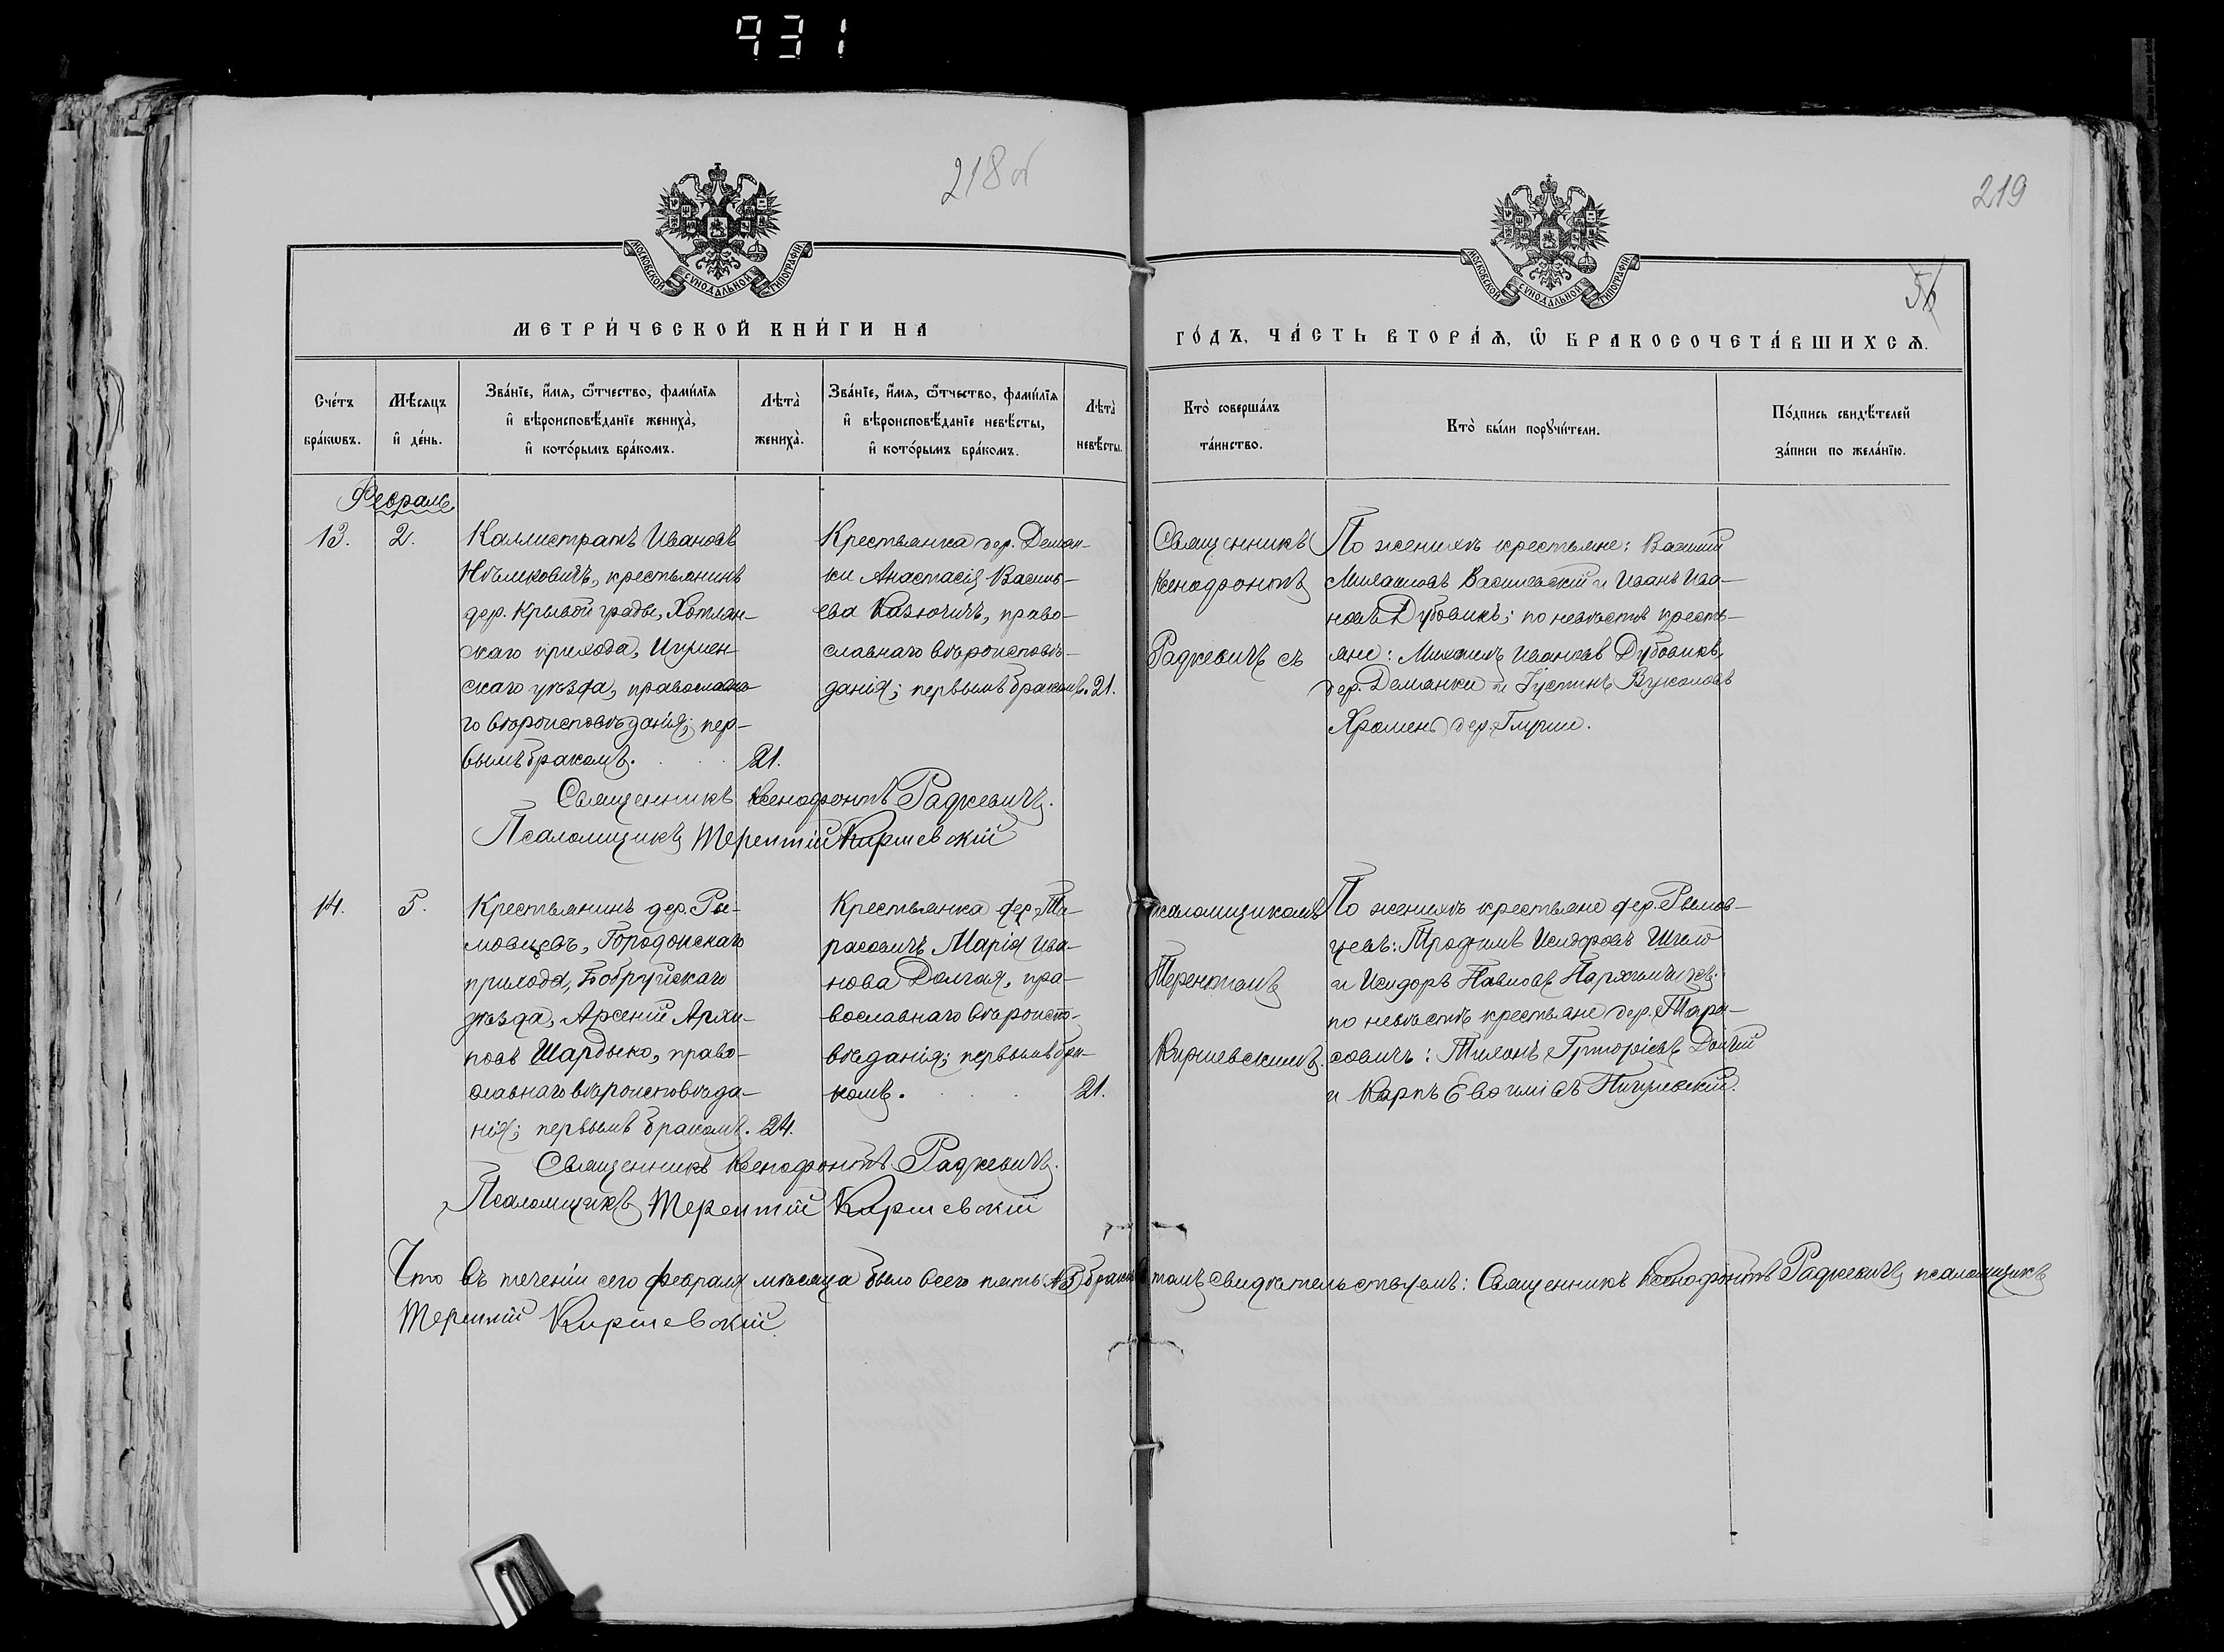 931
218 об
219
56
МОСКОВСКОЙ СѴНОДАЛЬНОЙ ТИПОГРАФІИ
МОСКОВСКОЙ СѴНОДАЛЬНОЙ ТИПОГРАФІИ
МЕТРИ́ЧЕСКОЙ КНИ́ГИ НА
ГО́ДЪ, ЧА́СТЬ ВТОРА́Ѧ, Ѡ҆ БРАКОСОЧЕТА́ВШИХСѦ.
Сче́тъ бра́кѡвъ.
Мѣ́сяцъ и҆ де́нь.
Зва́нїе, и҆́мѧ, ѻ҆́тчество, фами́лїѧ
и҆ вѣроисповѣ́данїе жениха̀,
и҆ кото́рымъ бра́комъ.
Лѣта̀ жениха̀.
Зва́нїе, и҆́мѧ, ѻ҆́тчество, фами́лїѧ
и҆ вѣроисповѣ́данїе невѣ́сты,
и҆ кото́рымъ бра́комъ.
Лѣта̀ невѣ́сты.
Кто̀ соверша́лъ та́инство.
Кто̀ бы́ли порꙋчи́тели.
По́дпись свидѣ́телей за́писи по жела́нїю.
Февраль
13.
2.
Каллистратъ Ивановъ
крестьянинъ
дер. Кривой грады, Хотлян-
скаго прихода, Игумен
скаго уѣзда, православна
го вѣроисповѣданія; пер-
вымъ бракомъ.
21.
Крестьянка дер. Демян-
ки Анастасія Василь-
ева Казючичъ, право-
славнаго вѣроисповѣ-
данія; первымъ бракомъ.
21.
Священникъ
Ксенофонтъ
Радкевичъ съ
По женихѣ крестьяне: Василій
Василевскій и Иванъ Ива-
новъ Дубовикъ; по невѣстѣ кресть-
яне: Михаилъ Ивановъ Дубовикъ,
дер. Демянки и Іустинъ
Хромень дер.
Священникъ Ксенофонтъ Радкевичъ.
Псаломщикъ Терентій Киршевскій
14.
5.
Крестьянинъ дер. Ры-
мовцевъ, Городокскаго
прихода, Бобруйскаго
уѣзда, Арсеній Архи-
повъ Шардыко, право-
славнаго вѣроисповѣда-
нія; первымъ бракомъ.
24.
Крестьянка дер. Та-
расовичъ Марія Ива-
нова Долгая, пра-
вославнаго вѣроиспо-
вѣданія; первымъ бра-
комъ.
21.
псаломщикомъ
Терентіемъ
Киршевскимъ.
По женихѣ крестьяне дер. Рымов-
цевъ: Трофимъ Исидоровъ
и Исидоръ Павловъ
по невѣстѣ крестьяне дер. Тара-
совичъ: Григоріевъ Долгій
и Карпъ Евфиміевъ
Священникъ Ксенофонтъ Радкевичъ.
Псаломщикъ Терентій Киршевскій
Что въ теченіи сего февраля мѣсяца было всего пять №5 браковъ томъ свидѣтельствуемъ: Священникъ Ксенофонтъ Радкевичъ псаломщикъ
Терентій Киршевскій